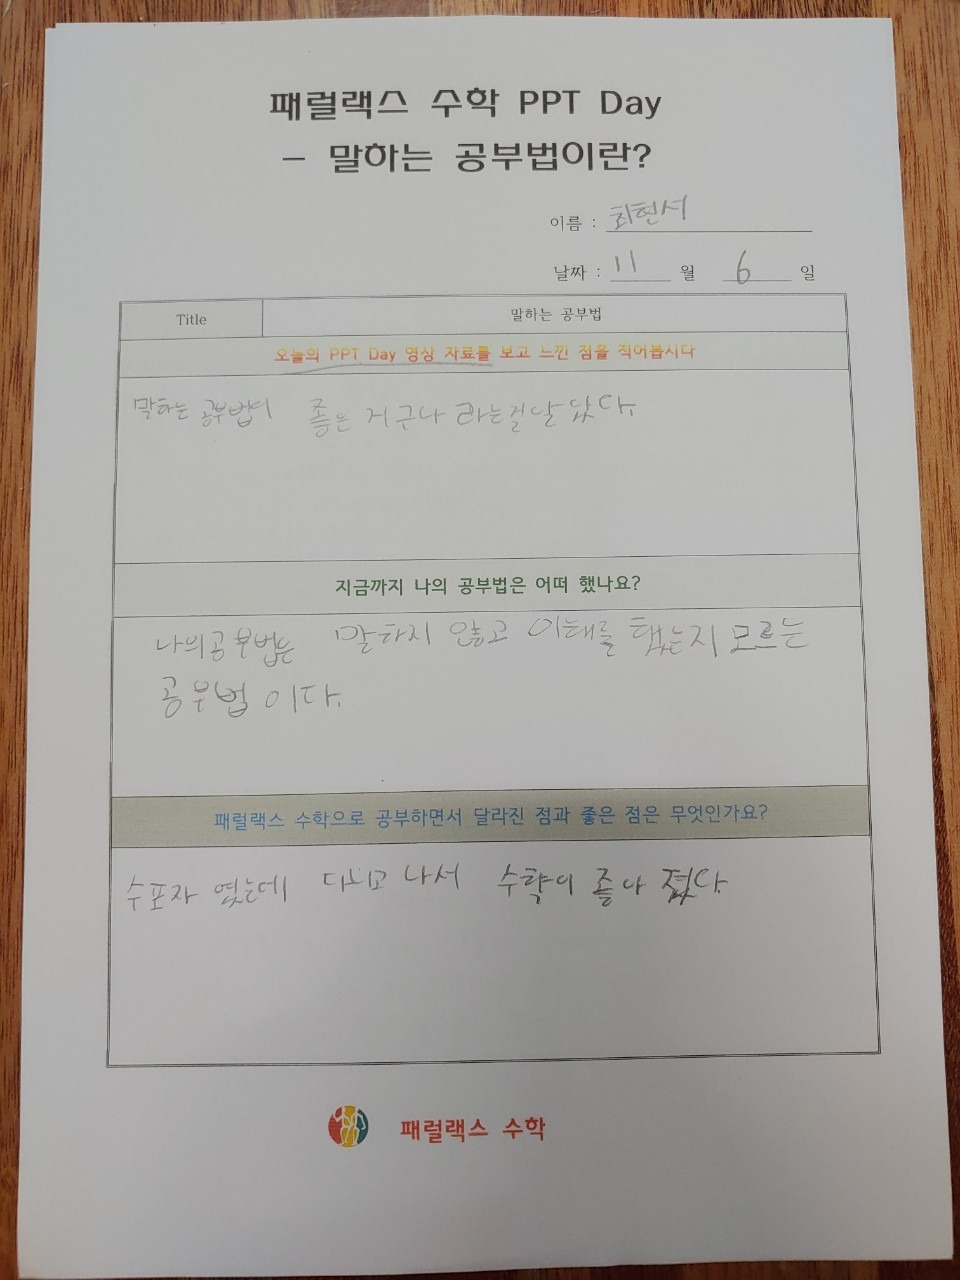 패럴랙스 수학 PPT Day
- 말하는 공부법이란?
이름 : 최현서
날짜 : 11 월 6 일
Title 말하는 공부법
오늘의 PPT Day 영상 자료를 보고 느낀 점을 적어봅시다
말하는 공부법이 좋은 거구나 라는걸 알았다.
지금까지 나의 공부법은 어떠 했나요?
나의공부법은 말하지 않고 이해를 했는지 모르는
공부법 이다.
패럴랙스 수학으로 공부하면서 달라진 점과 좋은 점은 무엇인가요?
수포자 였는데 다니고 나서 수학이 좋아 졌다.
패럴랙스 수학